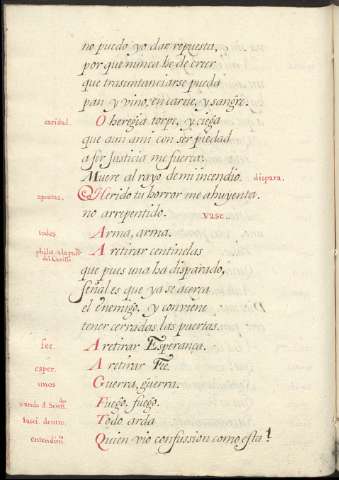 no puedo yo dar repuesta,
por que nunca he de creer
que trasuntanciarse pueda
pan y vino, en carne, y sangre.
caridad. O heregia torpe, y ciega
que aun a mi con ser piedad
a ser Justicia me fuerça.
Muere al rayo de mi incendio. dispara.
apostas. Herido tu horror me ahuyenta.
no arrepentido. vase.
todos Arma, arma.
A retirar centinelas
del Castillo
que pues una ha disparado,
señal es que ya se acerca
el enemigo, y conviene
tener cerradas las puertas.
fee. A retirar Esperança.
esper. A retirar Fee.
unos Guerra, guerra.
Fuego, fuego.
dentro. Todo arda
entendim.to Quien vio confussion como esta!